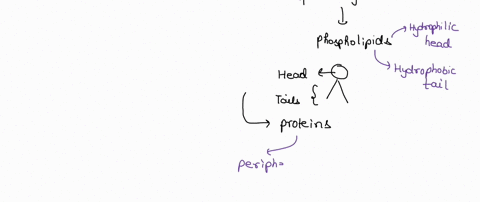 phospholipids
Hydrophilic
head
Hydrophobic
tail
Head
Tails
proteins
periphe